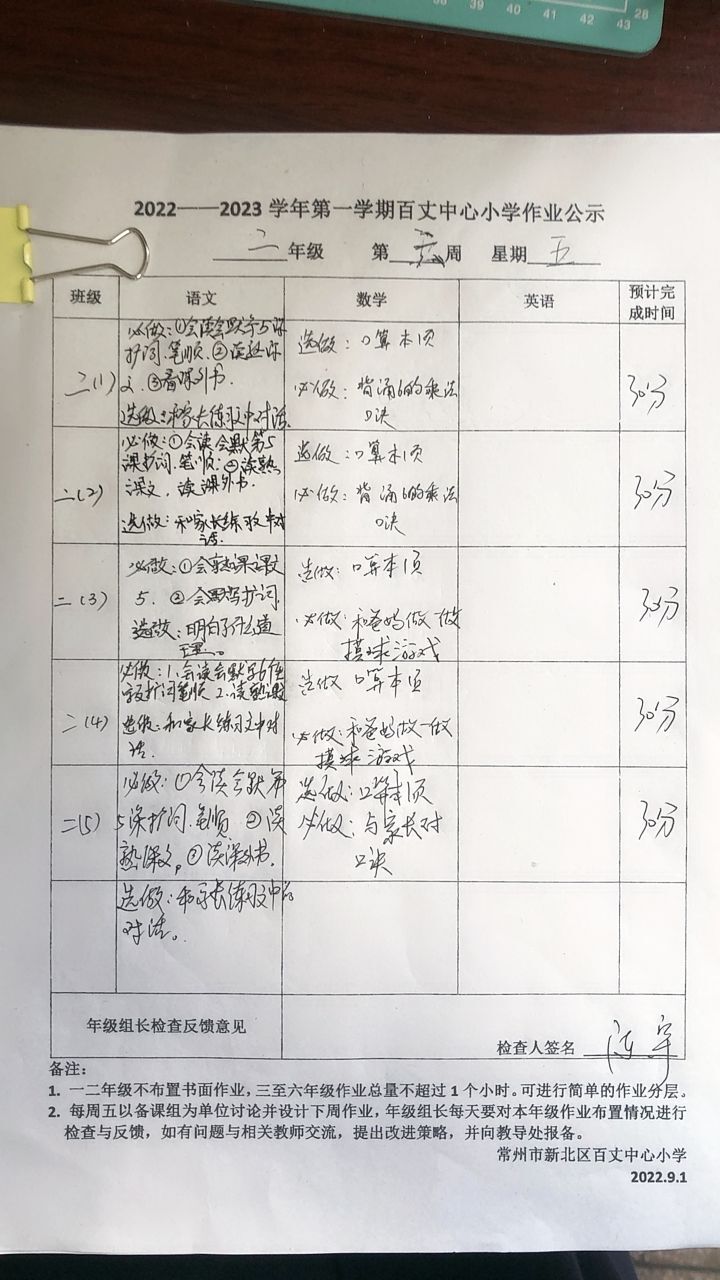 38 39 40 41 42 43 28
2022——2023 学年第一学期百丈中心小学作业公示
二年级 第六周 星期五
班级 语文 数学 英语 预计完成时间
二(1)
必做:①会读会默写5课
扩词.笔顺.②读熟课
文.③看课外书.
选做:和家长练文中对话
选做:口算本1页
必做:背诵6的乘法
口诀
30分
二(2)
必做:①会读会默第5
课扩词.笔顺.②读熟
课文.读课外书.
选做:和家长练文中对
话
选做:口算本1页
必做:背诵6的乘法
口诀
30分
二(3)
必做:①会熟课文
5. ②会默写扩词.
选做:明白了什么道
理。
选做:口算本1页
必做:和爸妈做一做
摸球游戏
30分
二(4)
必做:1.会读会默写
扩词笔顺 2.读熟课
选做:和家长练习文中对
话.
选做 口算本1页
必做:和爸妈做一做
摸球游戏
30分
二(5)
必做:①会读会默第
5课扩词.笔顺 ②读
熟课文,③读课外书.
选做:和家长练习文中的
对话。
选做:口算本1页
必做:与家长对
口诀
30分
年级组长检查反馈意见
检查人签名
备注:
1. 一二年级不布置书面作业,三至六年级作业总量不超过 1 个小时。可进行简单的作业分层。
2. 每周五以备课组为单位讨论并设计下周作业,年级组长每天要对本年级作业布置情况进行
检查与反馈,如有问题与相关教师交流,提出改进策略,并向教导处报备。
常州市新北区百丈中心小学
2022.9.1